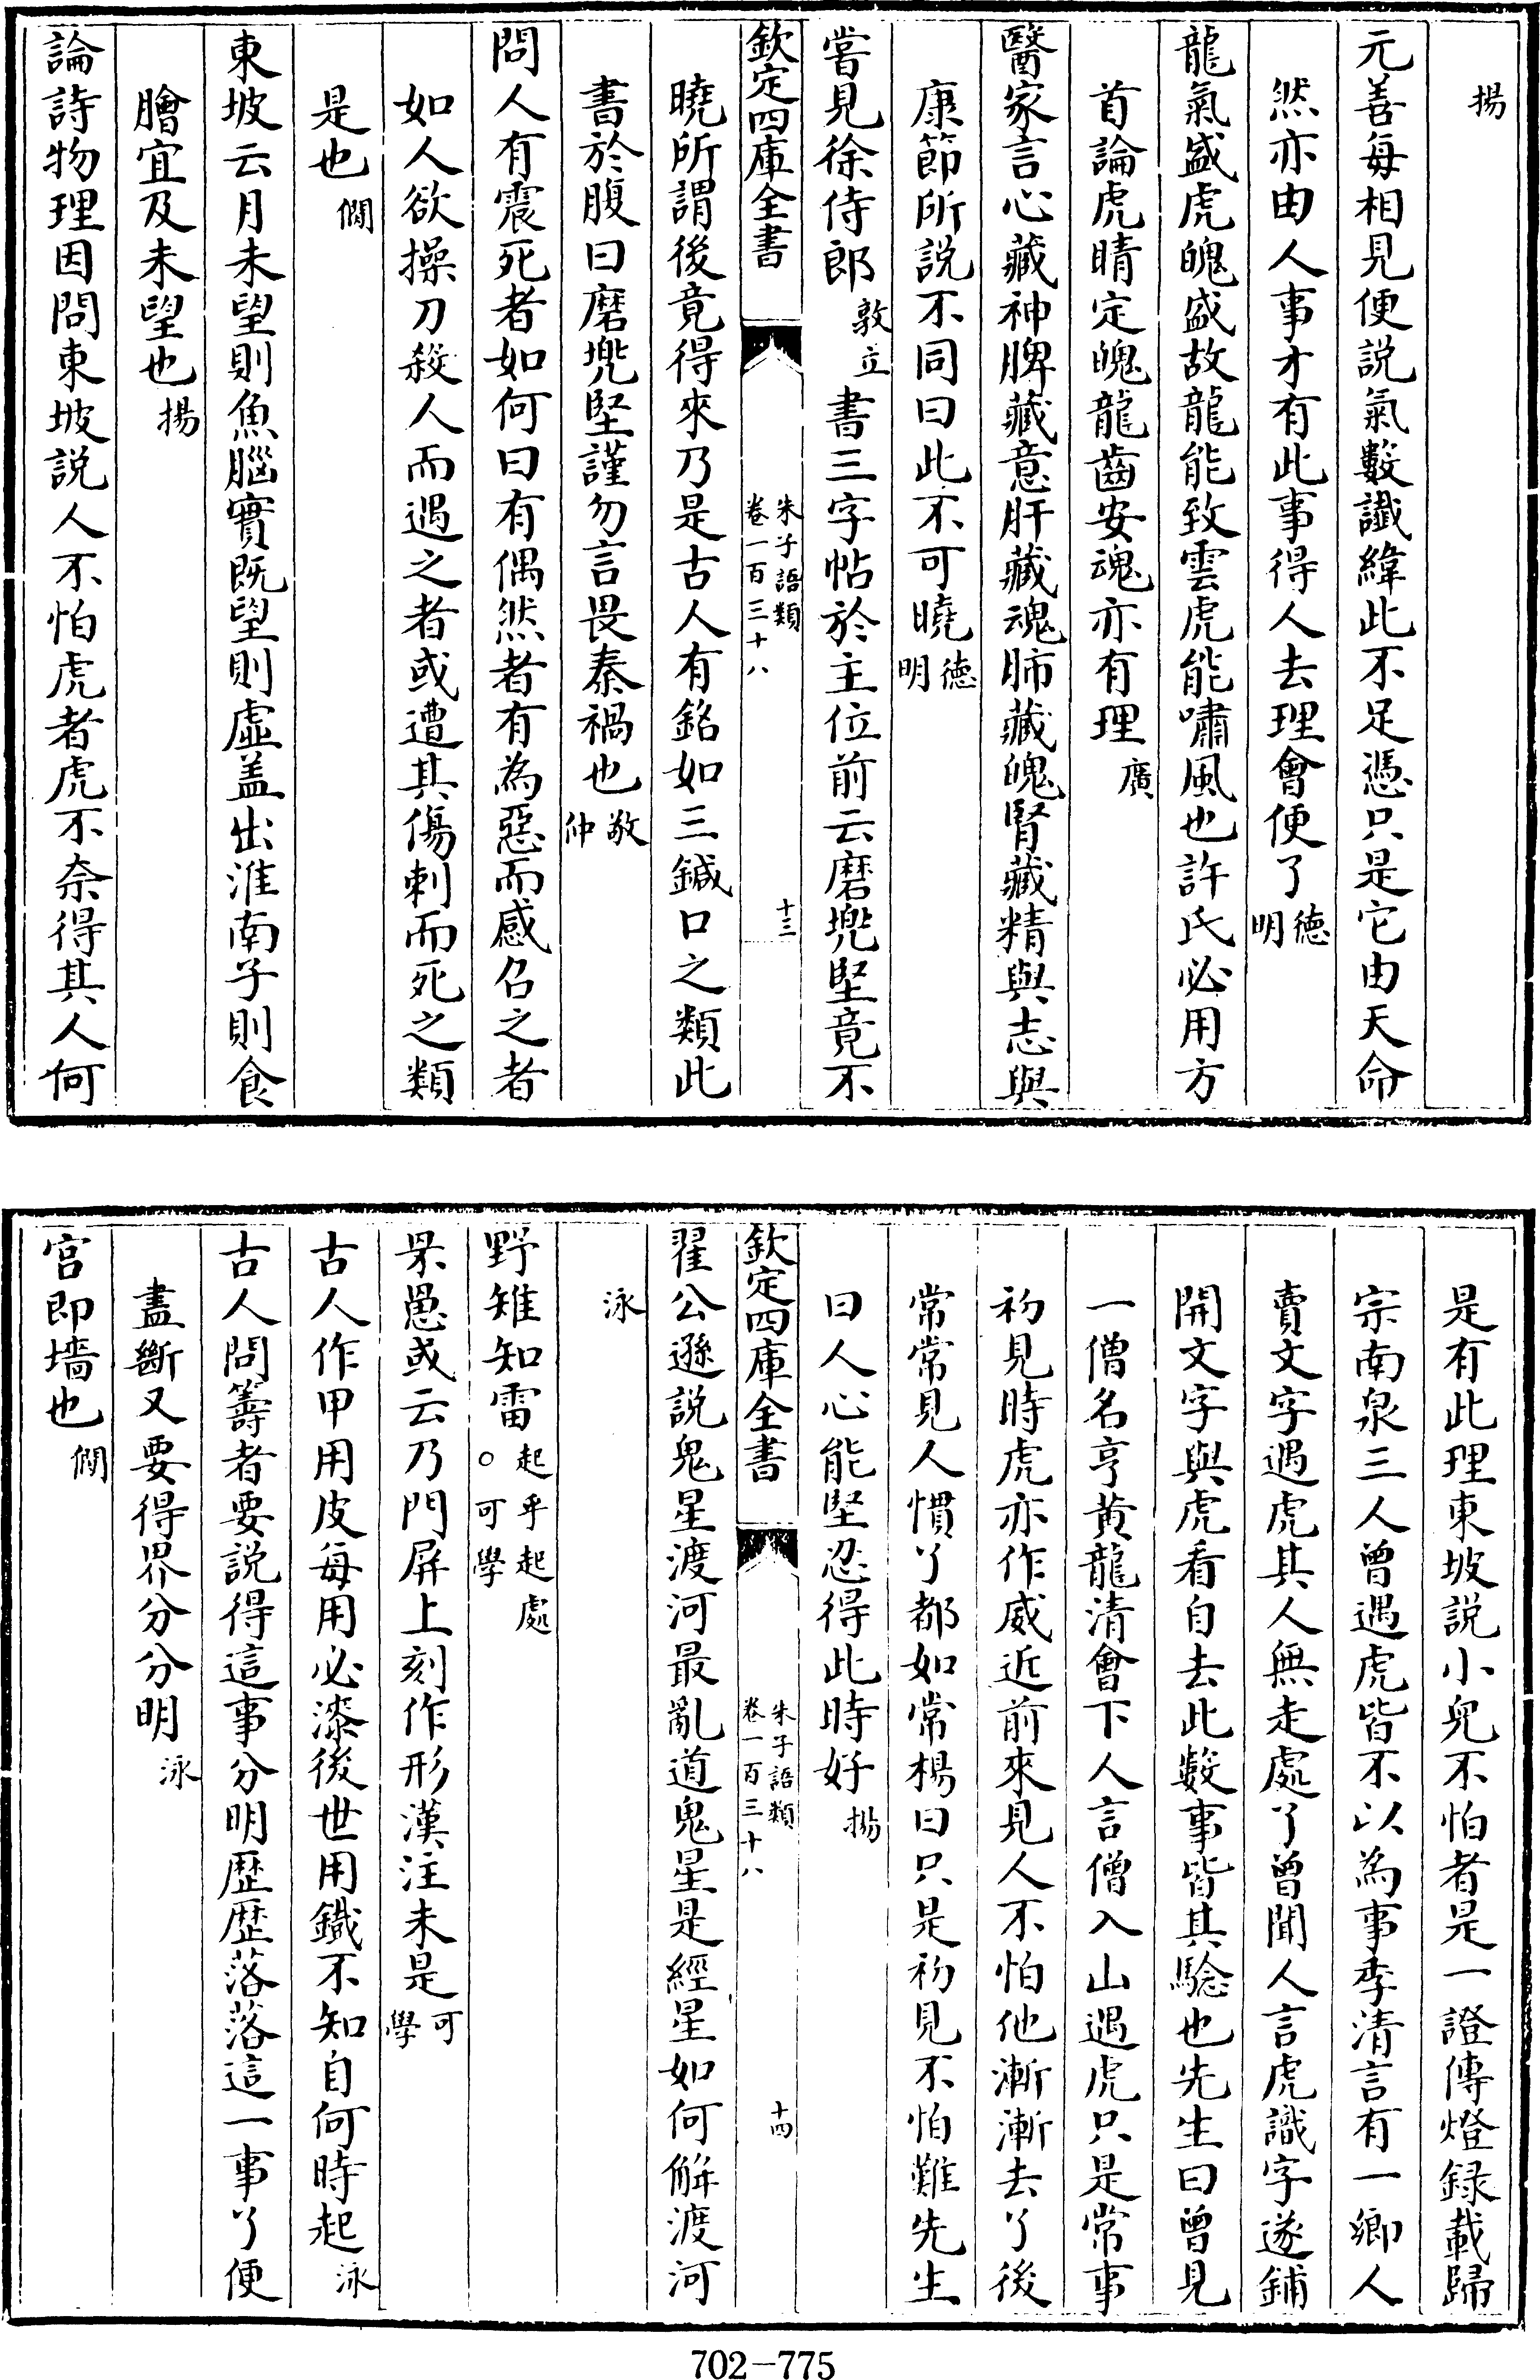 揚
元善每相見便説氣數讖緯此不足憑只是它由天命
然亦由人事才有此事得人去理會便了德明
龍氣盛虎魄盛故龍能致雲虎能嘯風也許氏必用方
首論虎睛定魄龍齒安魂亦有理廣
醫家言心藏神脾藏意肝藏魂肺藏魄腎藏精與志與
康節所説不同曰此不可曉德明
嘗見徐侍郎敦立書三字帖於主位前云磨兜堅竟不
欽定四庫全書
朱子語類
卷一百三十八
十三
曉所謂後竟得來乃是古人有銘如三鍼口之類此
書於腹曰磨兜堅謹勿言畏秦禍也敬仲
問人有震死者如何曰有偶然者有為惡而感召之者
如人欲操刀殺人而遇之者或遭其傷刺而死之類
是也僩
東坡云月未望則魚腦實既望則虛盖出淮南子則食
膾宜及未望也揚
論詩物理因問東坡説人不怕虎者虎不奈得其人何
是有此理東坡説小兒不怕者是一證傳燈録載歸
宗南泉三人曾遇虎皆不以為事季清言有一鄉人
賣文字遇虎其人無走處了曾聞人言虎識字遂鋪
開文字與虎看自去此數事皆其騐也先生曰曾見
一僧名亨黃龍清會下人言僧入山遇虎只是常事
初見時虎亦作威近前來見人不怕他漸漸去了後
常常見人慣了都如常楊曰只是初見不怕難先生
曰人心能堅忍得此時好揚
欽定四庫全書
朱子語類
卷一百三十八
十四
翟公遜説鬼星渡河最亂道鬼星是經星如何解渡河
泳
野雉知雷起乎起處○可學
罘罳或云乃門屏上刻作形漢注未是可學
古人作甲用皮每用必漆後世用鐵不知自何時起泳
古人問籌者要説得這事分明歴歴落落這一事了便
盡斷又要得界分分明泳
宫即墻也僩
702-775